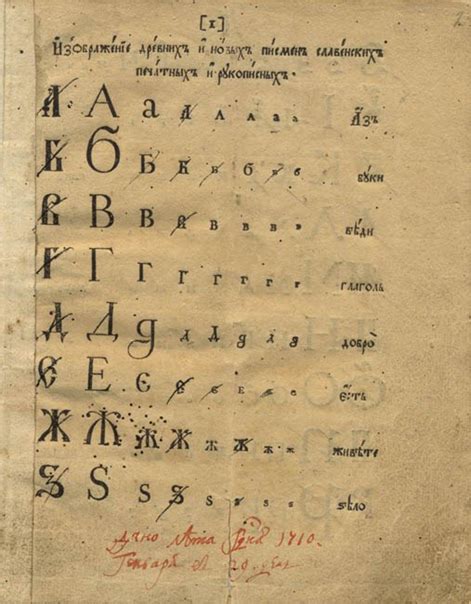 [1]
Изображенїе древнихъ и новыхъ писменъ славенскихъ
печатныхъ и рукописныхъ.
А А а а а а а а Азъ
Б Б Б Б Б б Б Б буки
В В В В В В В В вѣди
Г Г Г Г Г Г Г Г глаголь
Д Д д д Д д д д добро
Е Е Є е е е е е єсть
Ж Ж Ж Ж Ж Ж Ж Ж живѣте
Ѕ Ѕ Ѕ Ѕ ѕ ѕ ѕ ѕ ѕѣло
1710.
29